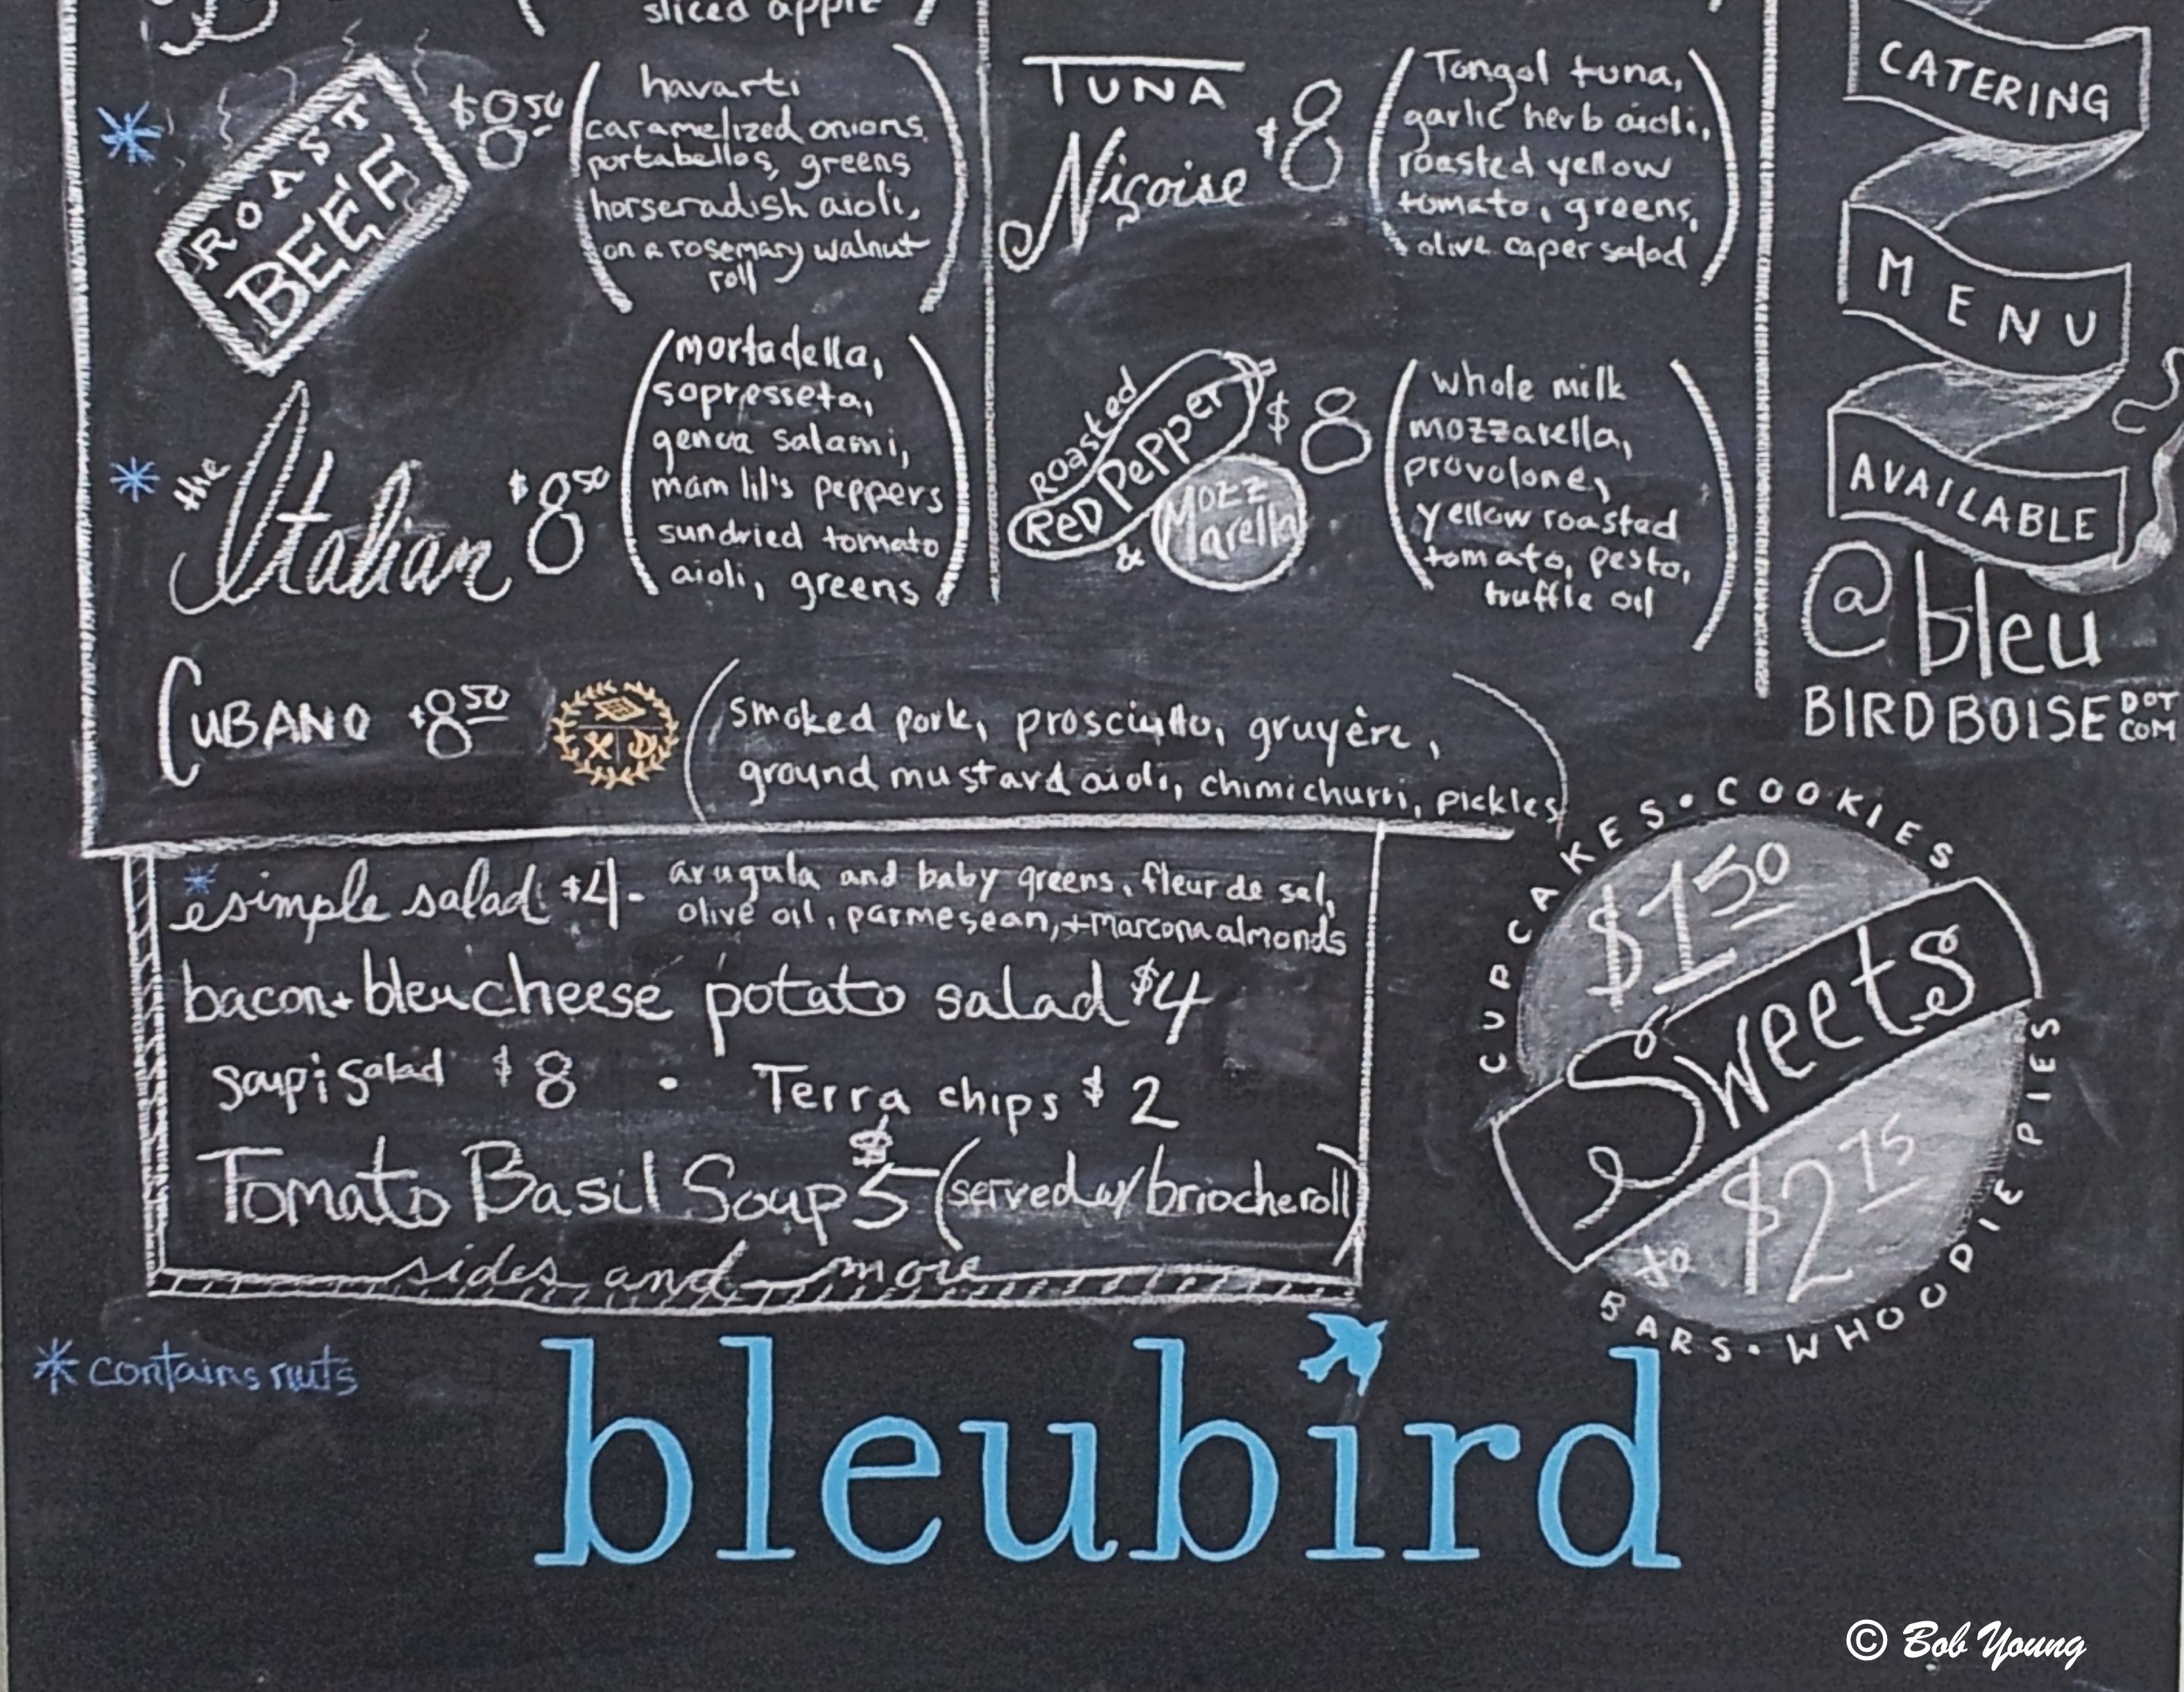 sliced apple
ROAST
BEEF
$8.50
havarti
caramelized onions,
portabellos, greens
horseradish aioli,
on a rosemary walnut
roll
the
Italian
$8.50
mortadella,
sopresseta,
genoa salami,
mam lil's peppers
sundried tomato
aioli, greens
TUNA
Niçoise
$8
Tongol tuna,
garlic herb aioli,
roasted yellow
tomato, greens,
olive caper salad
Roasted
Red Pepper
&
Mozz
arella
$8
whole milk
mozzarella,
provolone,
yellow roasted
tomato, pesto,
truffle oil
CUBANO $8.50
smoked pork, prosciutto, gruyère,
ground mustard aioli, chimichurri, pickles
CATERING
MENU
AVAILABLE
@bleu
BIRDBOISE DOT
COM
*simple salad $4- arugula and baby greens, fleur de sal,
olive oil, parmesean, + marcona almonds
bacon + bleu cheese potato salad $4
soup; salad $8 • Terra chips $2
Tomato Basil Soup $5 (served w/ brioche roll)
sides and more
CUPCAKES • COOKIES
$1.50
Sweets
to $2.75
BARS • WHOOPIE PIES
*contains nuts
bleubird
© Bob Young